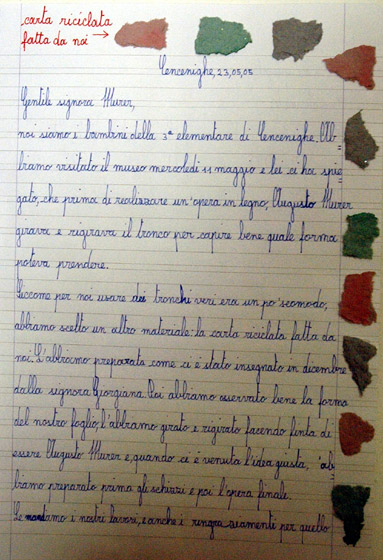 carta riciclata
fatta da noi
Cencenighe, 23,05,05
Gentile signora Murer,
noi siamo i bambini della 3ª elementare di Cencenighe. Ab
biamo visitato il museo mercoledì 11 maggio e lei ci hai spie
gato, che prima di realizzare un'opera in legno, Augusto Murer
girava e rigirava il tronco per capire bene quale forma
poteva prendere.
Siccome per noi usare dei tronchi veri era un po' scomodo,
abbiamo scelto un altro materiale: la carta riciclata fatta da
noi. L'abbiamo preparata come ci è stato insegnato in dicembre
dalla signora Giorgiana. Poi abbiamo osservato bene la forma
del nostro foglio, l'abbiamo girato e rigirato facendo finta di
essere Augusto Murer e, quando ci è venuta l'idea giusta, ab
biamo preparato prima gli schizzi e poi l'opera finale.
Le mandiamo i nostri lavori, e anche i ringraziamenti per quello